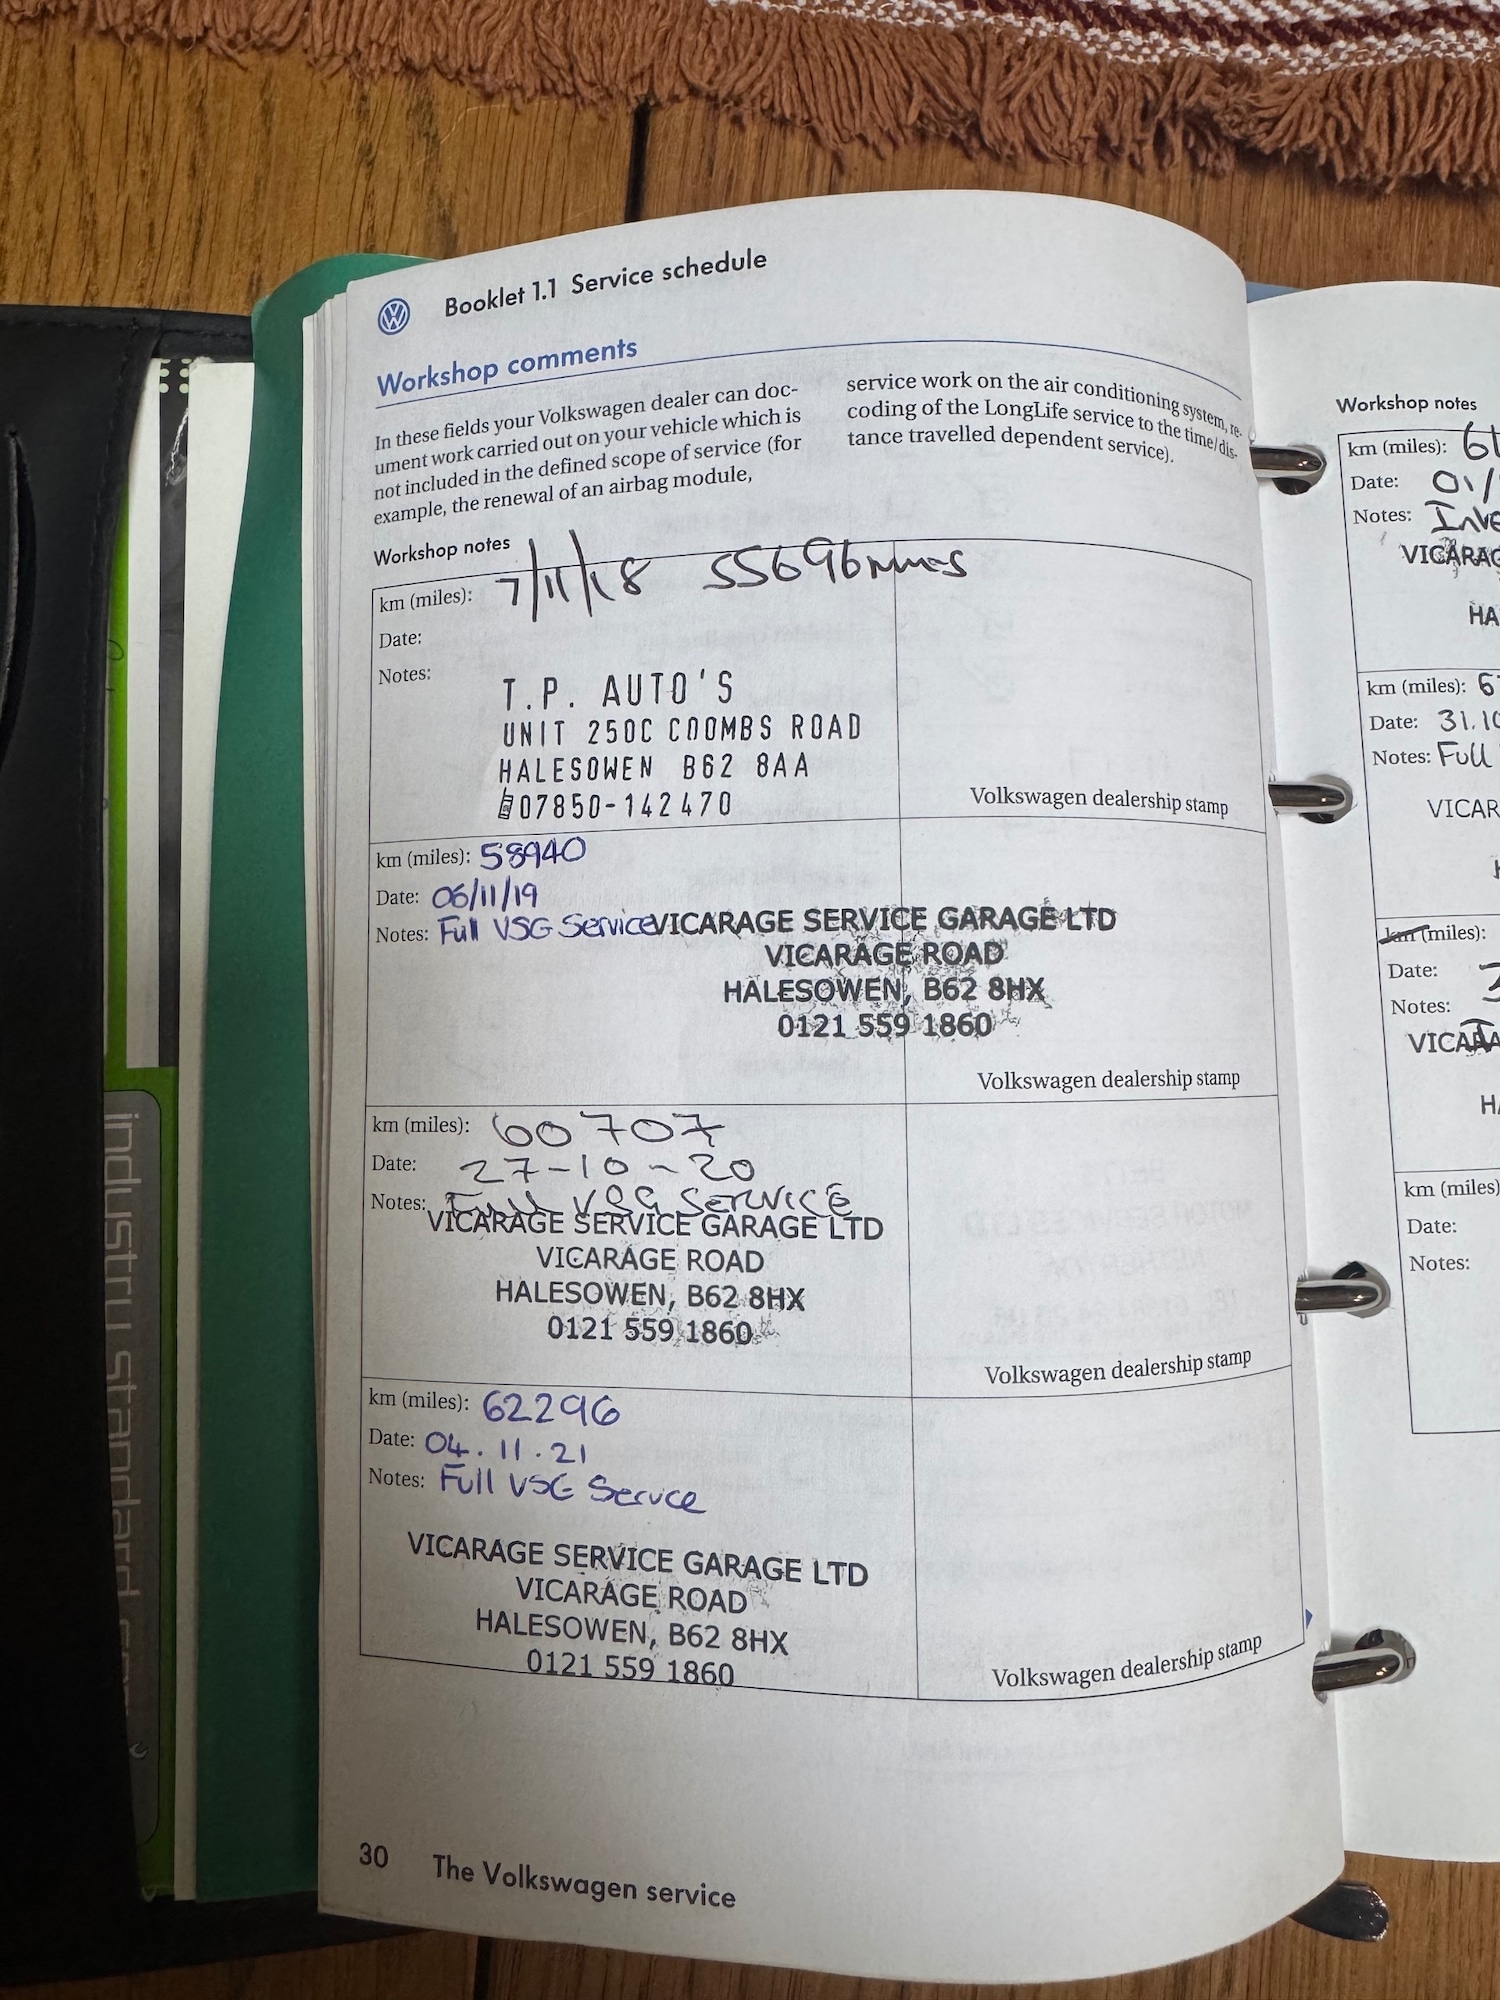 Booklet 1.1 Service schedule
Workshop comments
In these fields your Volkswagen dealer can doc-
ument work carried out on your vehicle which is
not included in the defined scope of service (for
example, the renewal of an airbag module,
service work on the air conditioning system, re-
coding of the LongLife service to the time/dis-
tance travelled dependent service).
Workshop notes
km (miles): 7/11/18 55696 miles
Date:
Notes:
T.P. AUTO'S
UNIT 250C COOMBS ROAD
HALESOWEN B62 8AA
07850-142470
Volkswagen dealership stamp
km (miles): 58940
Date: 06/11/19
Notes: Full VSG Service
VICARAGE SERVICE GARAGE LTD
VICARAGE ROAD
HALESOWEN, B62 8HX
0121 559 1860
Volkswagen dealership stamp
km (miles): 60707
Date: 27-10-20
Notes: Full VSG SERVICE
VICARAGE SERVICE GARAGE LTD
VICARAGE ROAD
HALESOWEN, B62 8HX
0121 559 1860
Volkswagen dealership stamp
km (miles): 62296
Date: 04.11.21
Notes: Full VSG Service
VICARAGE SERVICE GARAGE LTD
VICARAGE ROAD
HALESOWEN, B62 8HX
0121 559 1860
Volkswagen dealership stamp
30 The Volkswagen service
Workshop notes
km (miles):
Date: 01/
Notes: Inve
VICARAG
HA
km (miles): 6
Date: 31.10
Notes: Full
VICAR
H
km (miles):
Date: 3
Notes:
VICARA
HA
km (miles)
Date:
Notes:
industry standard